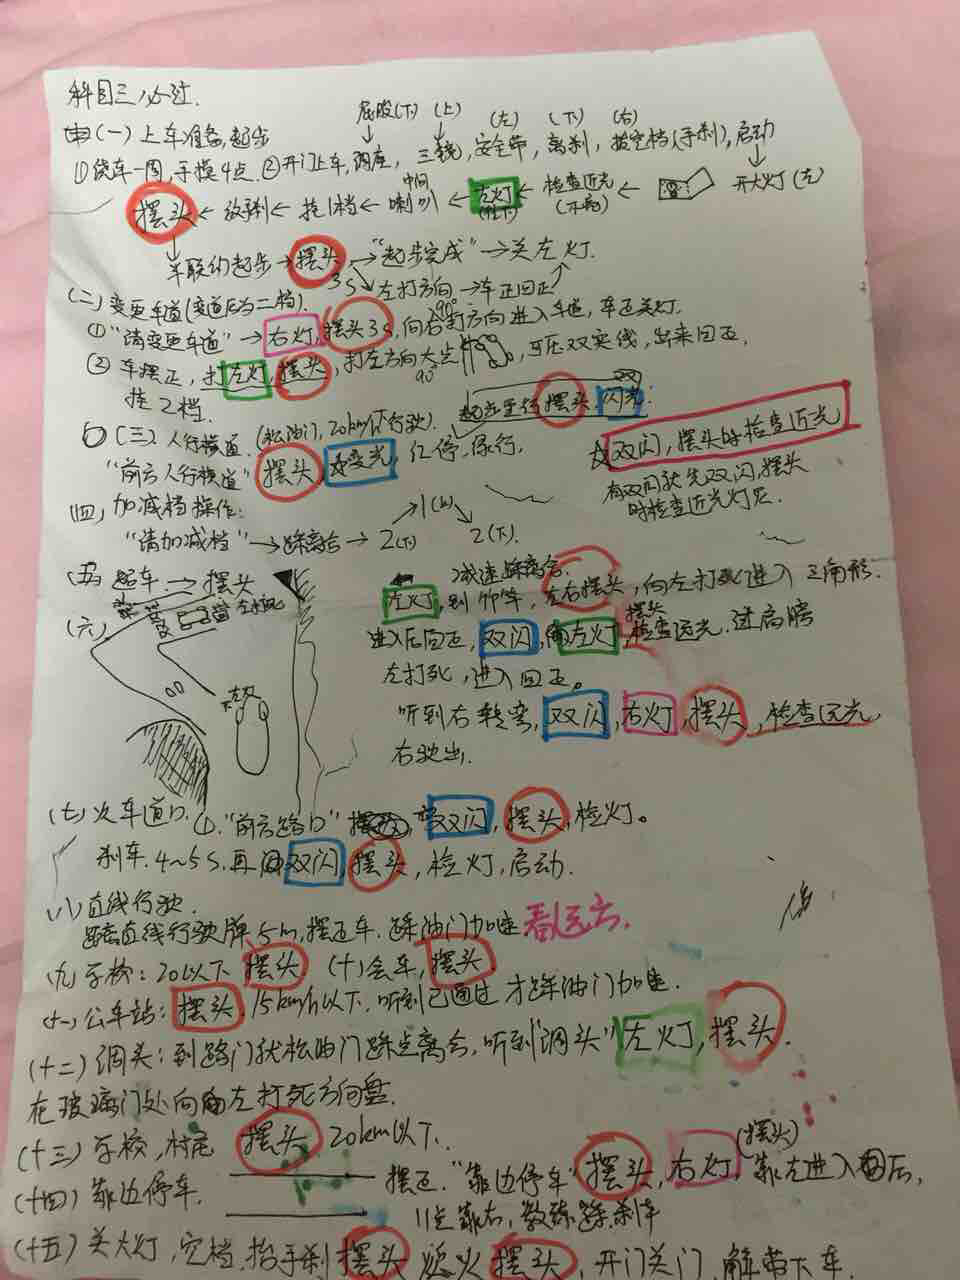 科目三必过.
(一)上车准备,起步
屁股(下) (上) (左) (下) (右)
①绕车一周,手摸4点.②开门上车,调座,三镜,安全带,离刹,拨空档(手刹),启动
摆头←放手刹←挂1档←喇叭←左灯←检查近光←开大灯(左)
中间
(往下) (不亮)
半联动起步→摆头→"起步完成"→关左灯.
3s 左打方向→车正回正
(二)变更车道(变道后为二档).
①"请变更车道"→右灯,摆头3s,向右打方向进入车道,车正关灯.
90°
②车摆正,打左灯,摆头,打左方向大点,可压双实线,出来回正,
90°
挂2档.
起点直行摆头,闪光.
(三)人行横道.(松油门,20km以下行驶)
"前方人行横道"摆头,变光,红停,绿行,
双闪,摆头时检查近光
有双闪就先双闪,摆头
时检查近光灯后
(四)加减档操作:
"请加减档"→踩离合→2(下) 1(上) 2(下).
(五)超车→摆头
减速踩离合
(六)
左灯,到,左右摆头,向左打死进入三角形.
进入后回正,双闪,左灯,摆头检查远光.过
左打死,进入回正。
听到右转弯,双闪,右灯,摆头,检查远光,
右驶出.
(七)火车道口.①."前方路口",双闪,摆头,检灯。
刹车.4~5s.再双闪,摆头,检灯,启动.
(八)直线行驶.
距离直线行驶牌5m,摆正车.踩油门加速看远方.
(九)学校:20以下摆头 (十)会车,摆头.
(十一)公车站:摆头,15km/h以下.听到已通过才踩油门加速.
(十二)调头:到路门就松油门踩点离合,听到"调头"左灯,摆头.
在玻璃门处向左打死方向盘.
(十三)学校,村庄 摆头 20km以下.
(十四)靠边停车. 摆正."靠边停车"摆头,右灯(摆头)靠左进入后,
11点靠右,教练踩刹车
(十五)关大灯,空档,抬手刹摆头熄火摆头,开门关门,解带下车